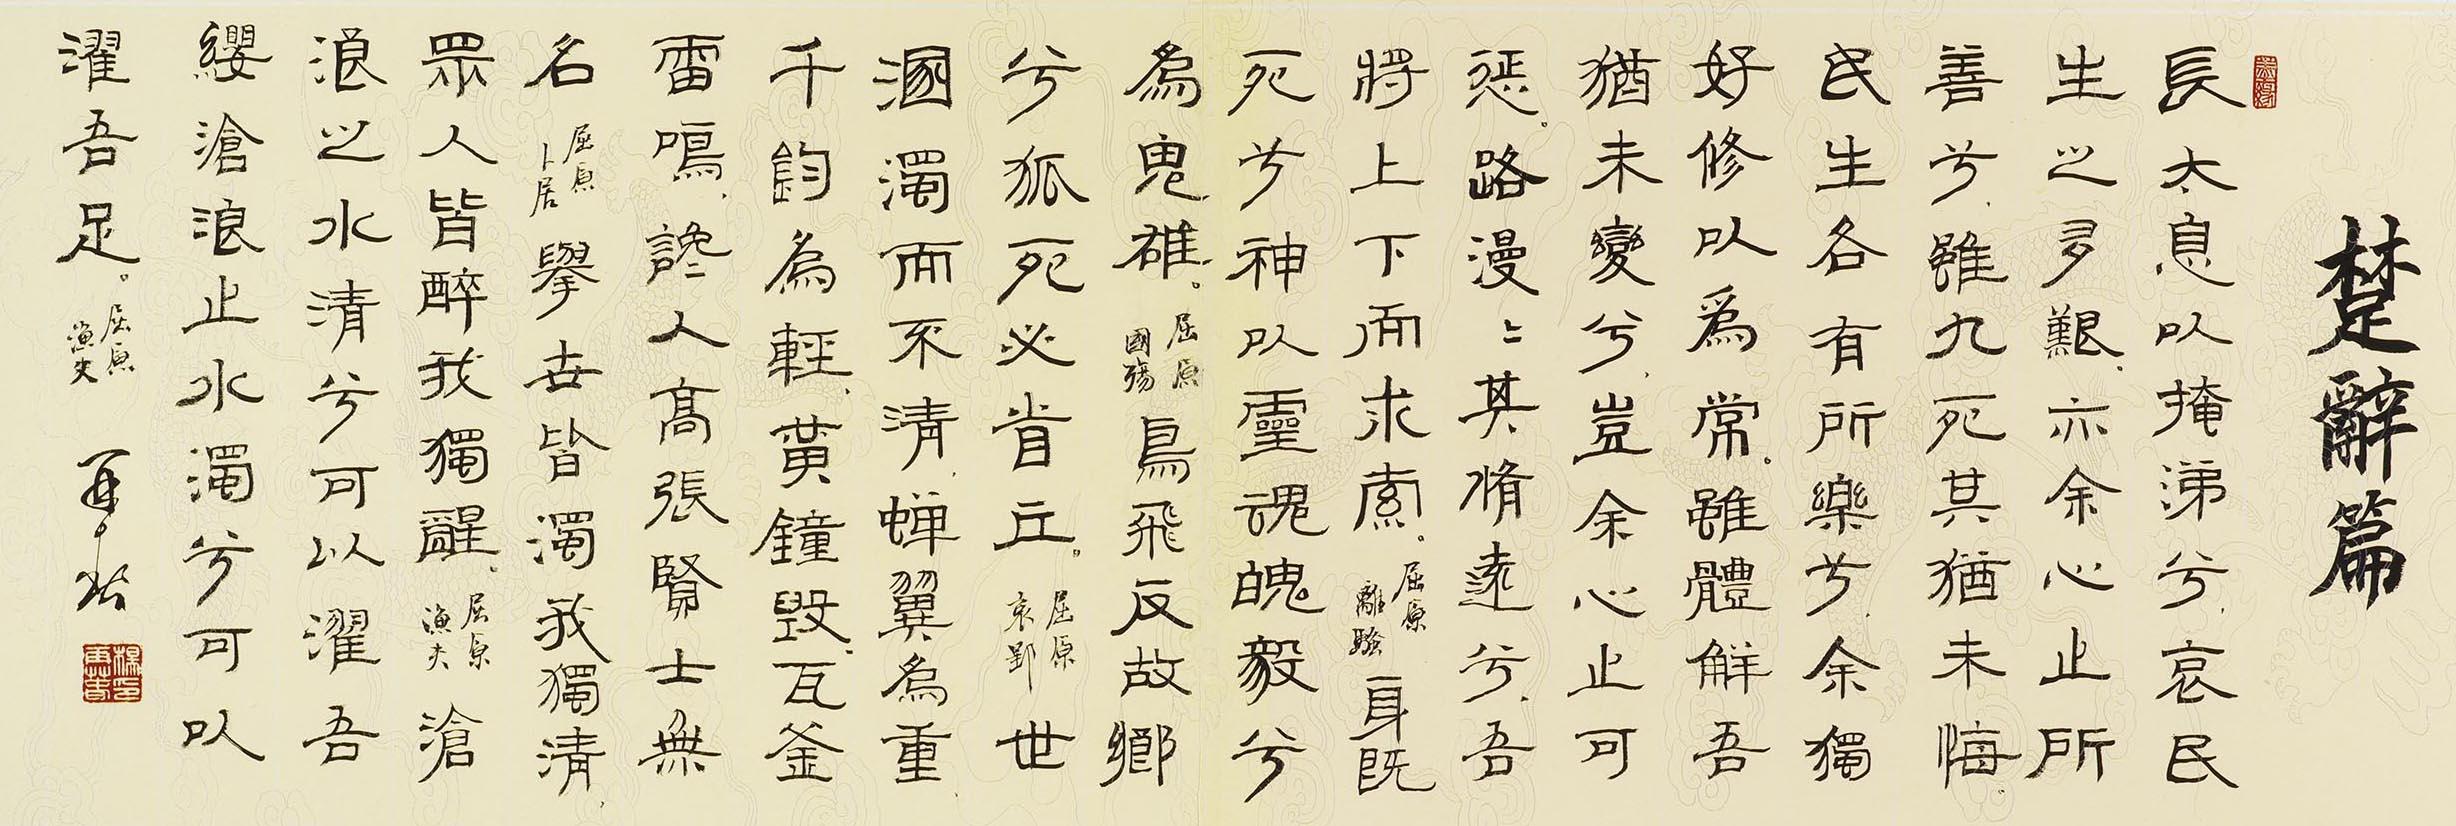 楚辭篇
長太息以掩涕兮、哀民
生之多艱、亦余心之所
善兮、雖九死其猶未悔。
民生各有所樂兮、余獨
好修以爲常。雖體解吾
猶未變兮、豈余心之可
惩。路漫〻其脩遠兮、吾
將上下而求索。屈原離騷 身既
死兮神以靈魂魄毅兮
為鬼雄。屈原國殤 鳥飛反故鄉
兮狐死必首丘。屈原哀郢 世
溷濁而不清、蟬翼為重
千鈞為輕、黃鐘毀、瓦釜
雷鳴、讒人高張賢士無
名 屈原卜居 舉世皆濁我獨清、
眾人皆醉我獨醒、屈原漁父 滄
浪之水清兮可以濯吾
纓滄浪之水濁兮可以
濯吾足。屈原漁父